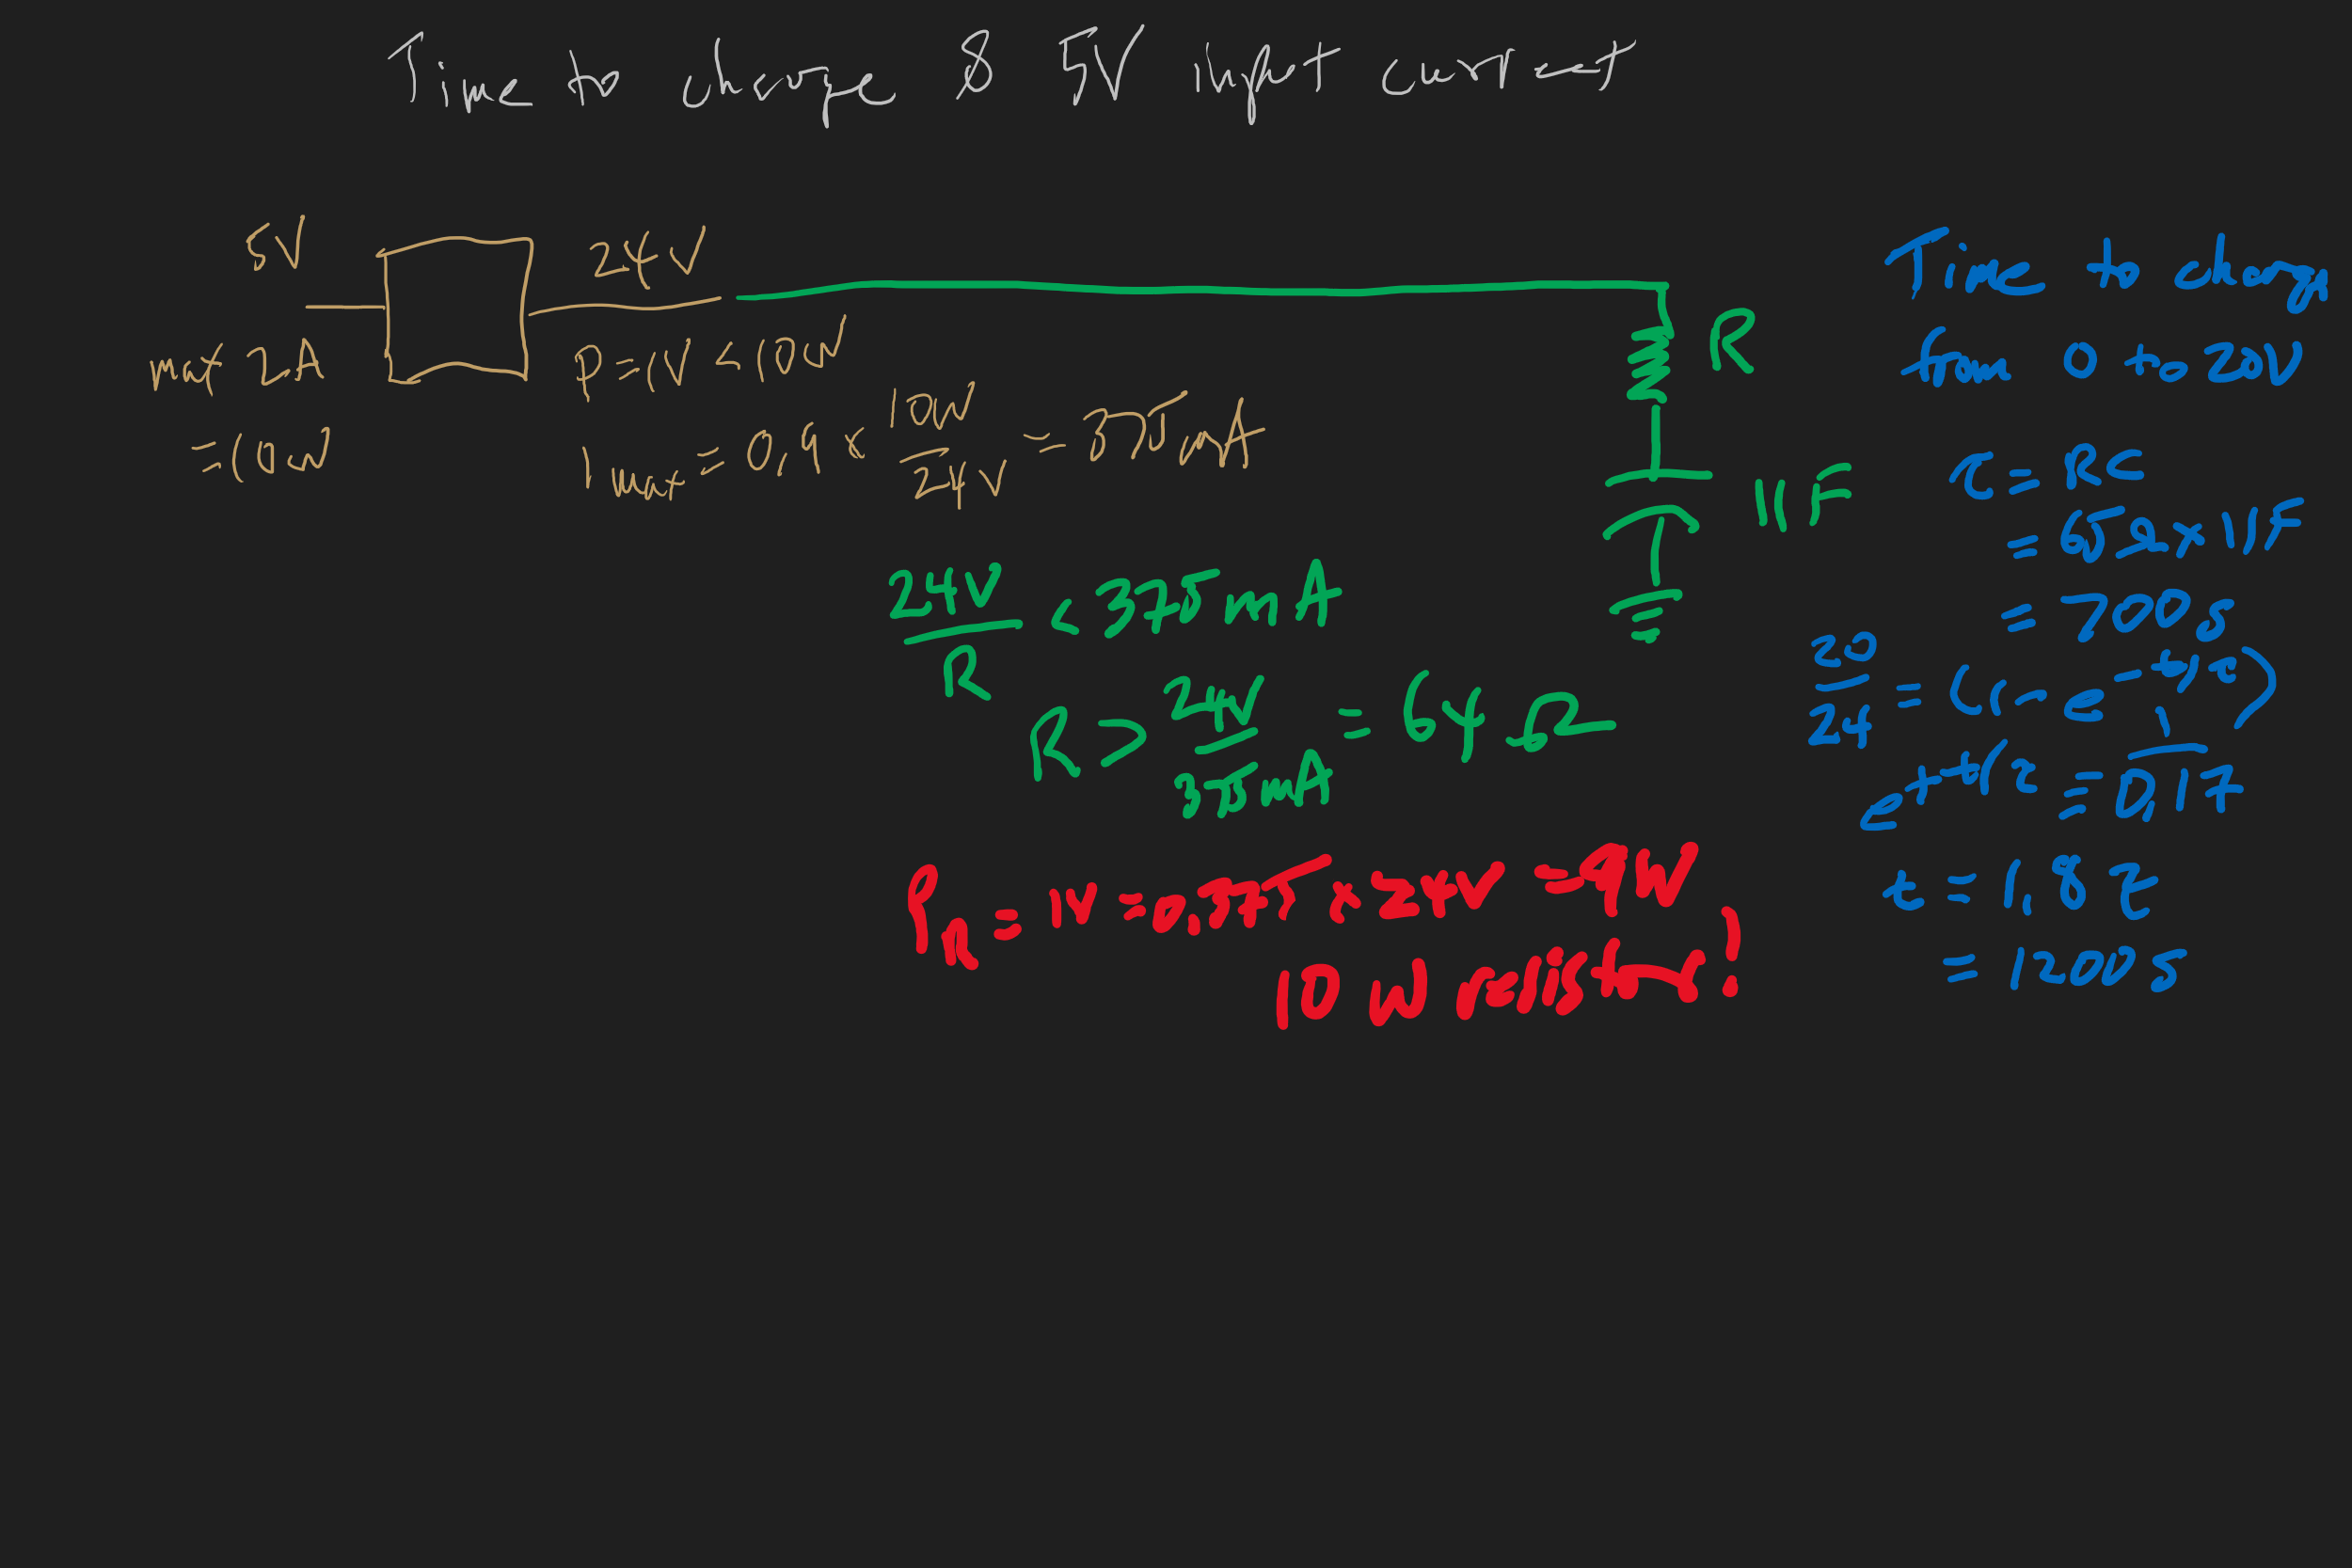 Time to charge & 5V input current
5V
max 2A
= 10W
24V
P = IV < 10W
Imax = 0.9 × 10W / 24V = 375mA
24V / R < 375mA
R > 24V / 375mA = 64Ω
P_R = IV = 0.375 × 24V = 9W
10W resistors!
R
11F
Time to charge
from 0 to 20V
τ = RC
= 65Ω × 11F
= 700s
20/24 = (1 - e^-t/τ)
e^+t/τ = 1/0.17
t = 1.8τ
= 1200s